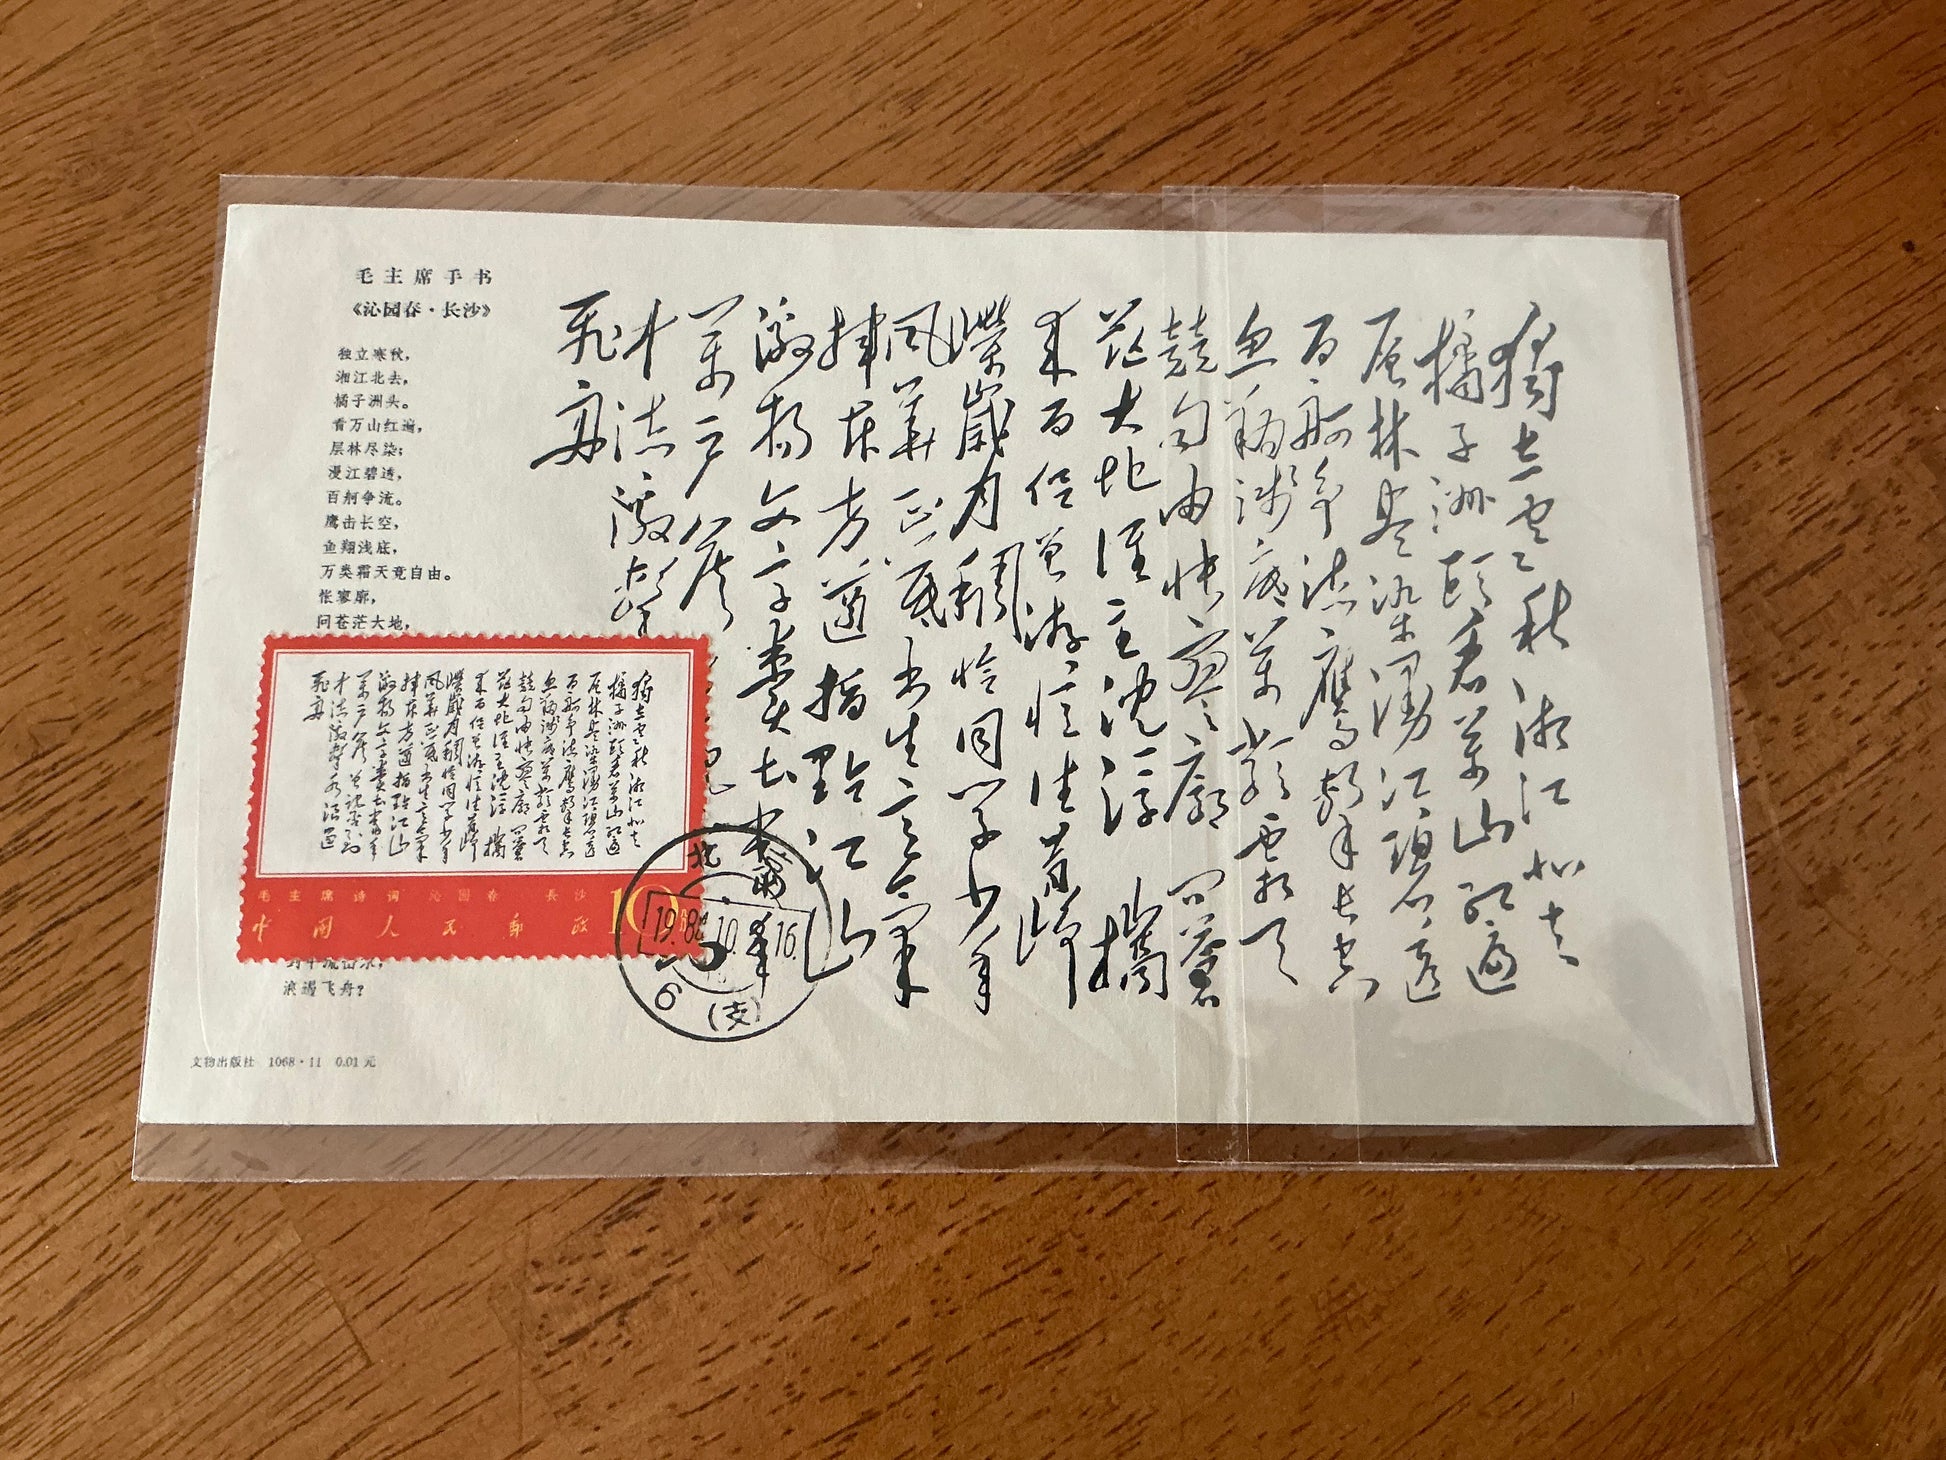 毛主席手书
《沁园春·长沙》
独立寒秋，
湘江北去，
橘子洲头。
看万山红遍，
层林尽染；
漫江碧透，
百舸争流。
鹰击长空，
鱼翔浅底，
万类霜天竞自由。
怅寥廓，
问苍茫大地，
浪遏飞舟？
文物出版社 1068·11 0.01元
獨立寒秋湘江北去
橘子洲頭看萬山紅遍
层林尽染漫江碧透
百舸争流鷹擊長空
魚翔浅底萬類霜天
競自由怅寥廓问蒼
茫大地谁主沈浮攜
来百侣曾游憶往昔峥
嵘歲月稠恰同学少年
风華正茂书生意氣
揮斥方遒指點江山
激扬文字粪土当年
萬户侯
中流擊
飛舟
毛主席诗词 沁园春 長沙
中国人民邮政
10
北京
1984.10.16.
6
(支)